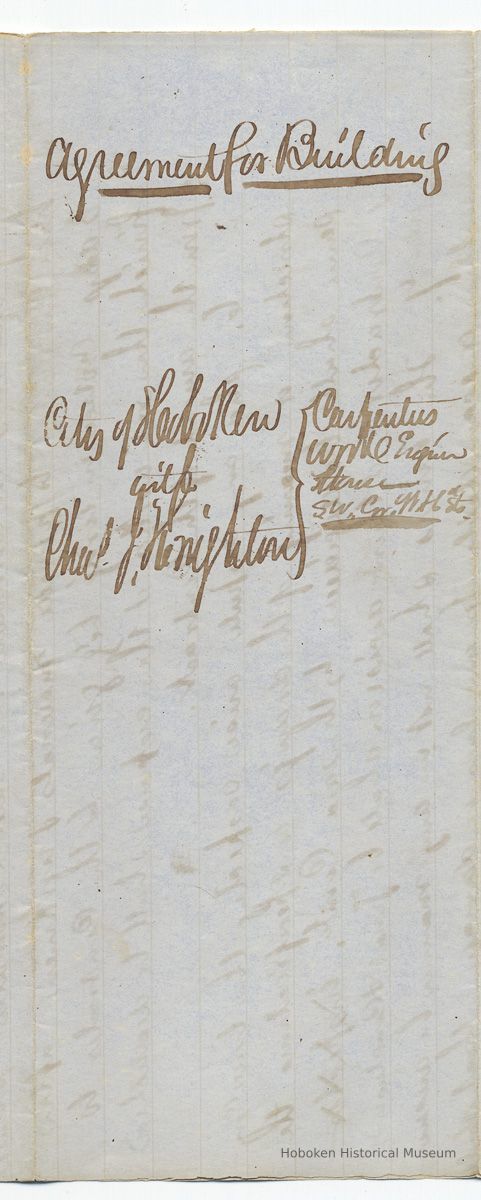 Agreement for Building
City of Hoboken
with
Chas. J. Knighton
Carpenters
work Engine
House
SW. Cor.
Hoboken Historical Museum